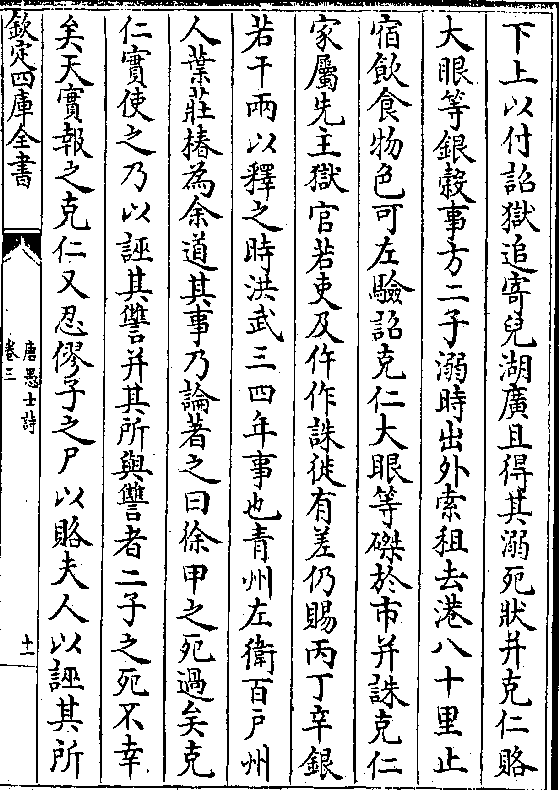 下上以付詔獄追寄兒湖廣且得其溺死狀并克仁賂
大眼等銀穀事方二子溺時出外索租去港八十里止
宿飲食物色可左驗詔克仁大眼等磔於市并誅克仁
家屬先主獄官若吏及仵作誅徙有差仍賜丙丁辛銀
若干兩以釋之時洪武三四年事也青州左衛百戶州
人葉莊椿為余道其事乃論著之曰徐甲之死過矣克
仁實使之乃以誣其讐并其所與讐者二子之死不幸
矣天實報之克仁又忍僇子之尸以賂夫人以誣其所
欽定四庫全書
唐愚士詩
卷三
十一